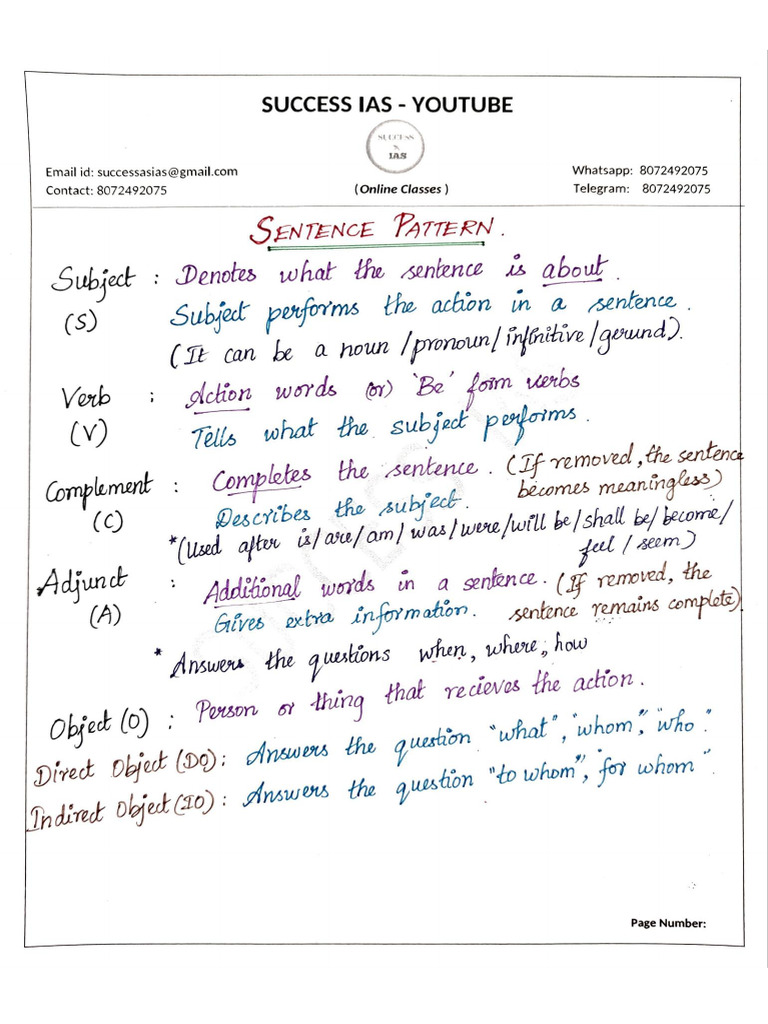 SUCCESS IAS - YOUTUBE
SUCCESS
IAS
Email id: successasias@gmail.com
Whatsapp: 8072492075
Contact: 8072492075
(Online Classes )
Telegram: 8072492075
SENTENCE PATTERN.
Subject : Denotes what the sentence is about.
(S) Subject performs the action in a sentence.
(It can be a noun /pronoun/infinitive/gerund).
Verb : Action words (or) 'Be' form verbs
(V) Tells what the subject performs.
Complement : Completes the sentence. (If removed, the sentence
becomes meaningless)
(C) Describes the subject.
*(Used after is/are/am/was/were/will be/shall be/become/
feel / seem)
Adjunct : Additional words in a sentence. (If removed, the
(A) Gives extra information. sentence remains complete)
* Answers the questions when, where, how
Object (O) : Person or thing that recieves the action.
Direct Object (DO) : Answers the question "what", "whom", "who".
Indirect Object (IO) : Answers the question "to whom", for whom"
Page Number: